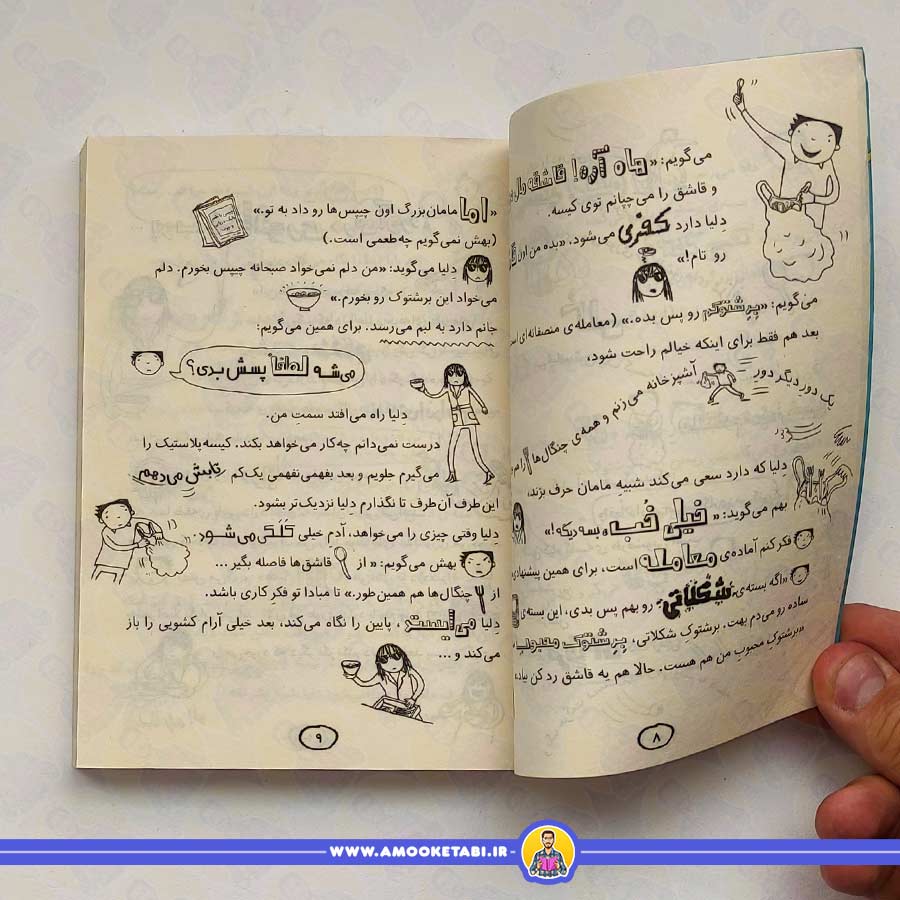 می‌گویم: «هاه آره! قاشقه مال
و قاشق را می‌چپانم توی کیسه.
دِلیا دارد کفری می‌شود. «بده من اون
رو تام!»
می‌گویم: «پِرِشتوک رو پس بده.» (معامله‌ی منصفانه‌ای
بعد هم فقط برای اینکه خیالم راحت شود،
یک دور دیگر دور آشپزخانه می‌زنم و همه‌ی چنگال‌ها را
دِلیا که دارد سعی می‌کند شبیه مامان حرف بزند،
بهم می‌گوید: «خیلی خُب، بسه دیگه!»
فکر کنم آماده‌ی معامله است، برای همین پیشنهاد
«اگه بسته‌ی شکلاتی رو بهم پس بدی، این بسته‌ی
ساده رو می‌دم بهت. برشتوکِ شکلاتی، پرشتوک محبوب
«برشتوکِ محبوبِ من هم هست. حالا هم یه قاشق رد کن بیاد،
۸
«اما مامان‌بزرگ اون چیپس‌ها رو داد به تو.»
(بهش نمی‌گویم چه‌طعمی است.)
دِلیا می‌گوید: «من دلم نمی‌خواد صبحانه چیپس بخورم. دلم
می‌خواد این برشتوک رو بخورم.»
جانم دارد به لبم می‌رسد. برای همین می‌گویم:
می‌شه لطفاً پسش بدی؟
دِلیا راه می‌افتد سمتِ من.
درست نمی‌دانم چه‌کار می‌خواهد بکند. کیسه‌پلاستیک را
می‌گیرم جلویم و بعد بفهمی‌نفهمی یک‌کم تابش می‌دهم
این طرف آن‌طرف تا نگذارم دِلیا نزدیک‌تر بشود.
دِلیا وقتی چیزی را می‌خواهد، آدم خیلی کَلَکی می‌شود.
بهش می‌گویم: «از قاشق‌ها فاصله بگیر ...
از چنگال‌ها هم همین‌طور.» تا مبادا تو فکرِ کاری باشد.
دِلیا می‌ایستد، پایین را نگاه می‌کند، بعد خیلی آرام کشویی را باز
می‌کند و ...
۹
WWW.AMOOKETABI.IR